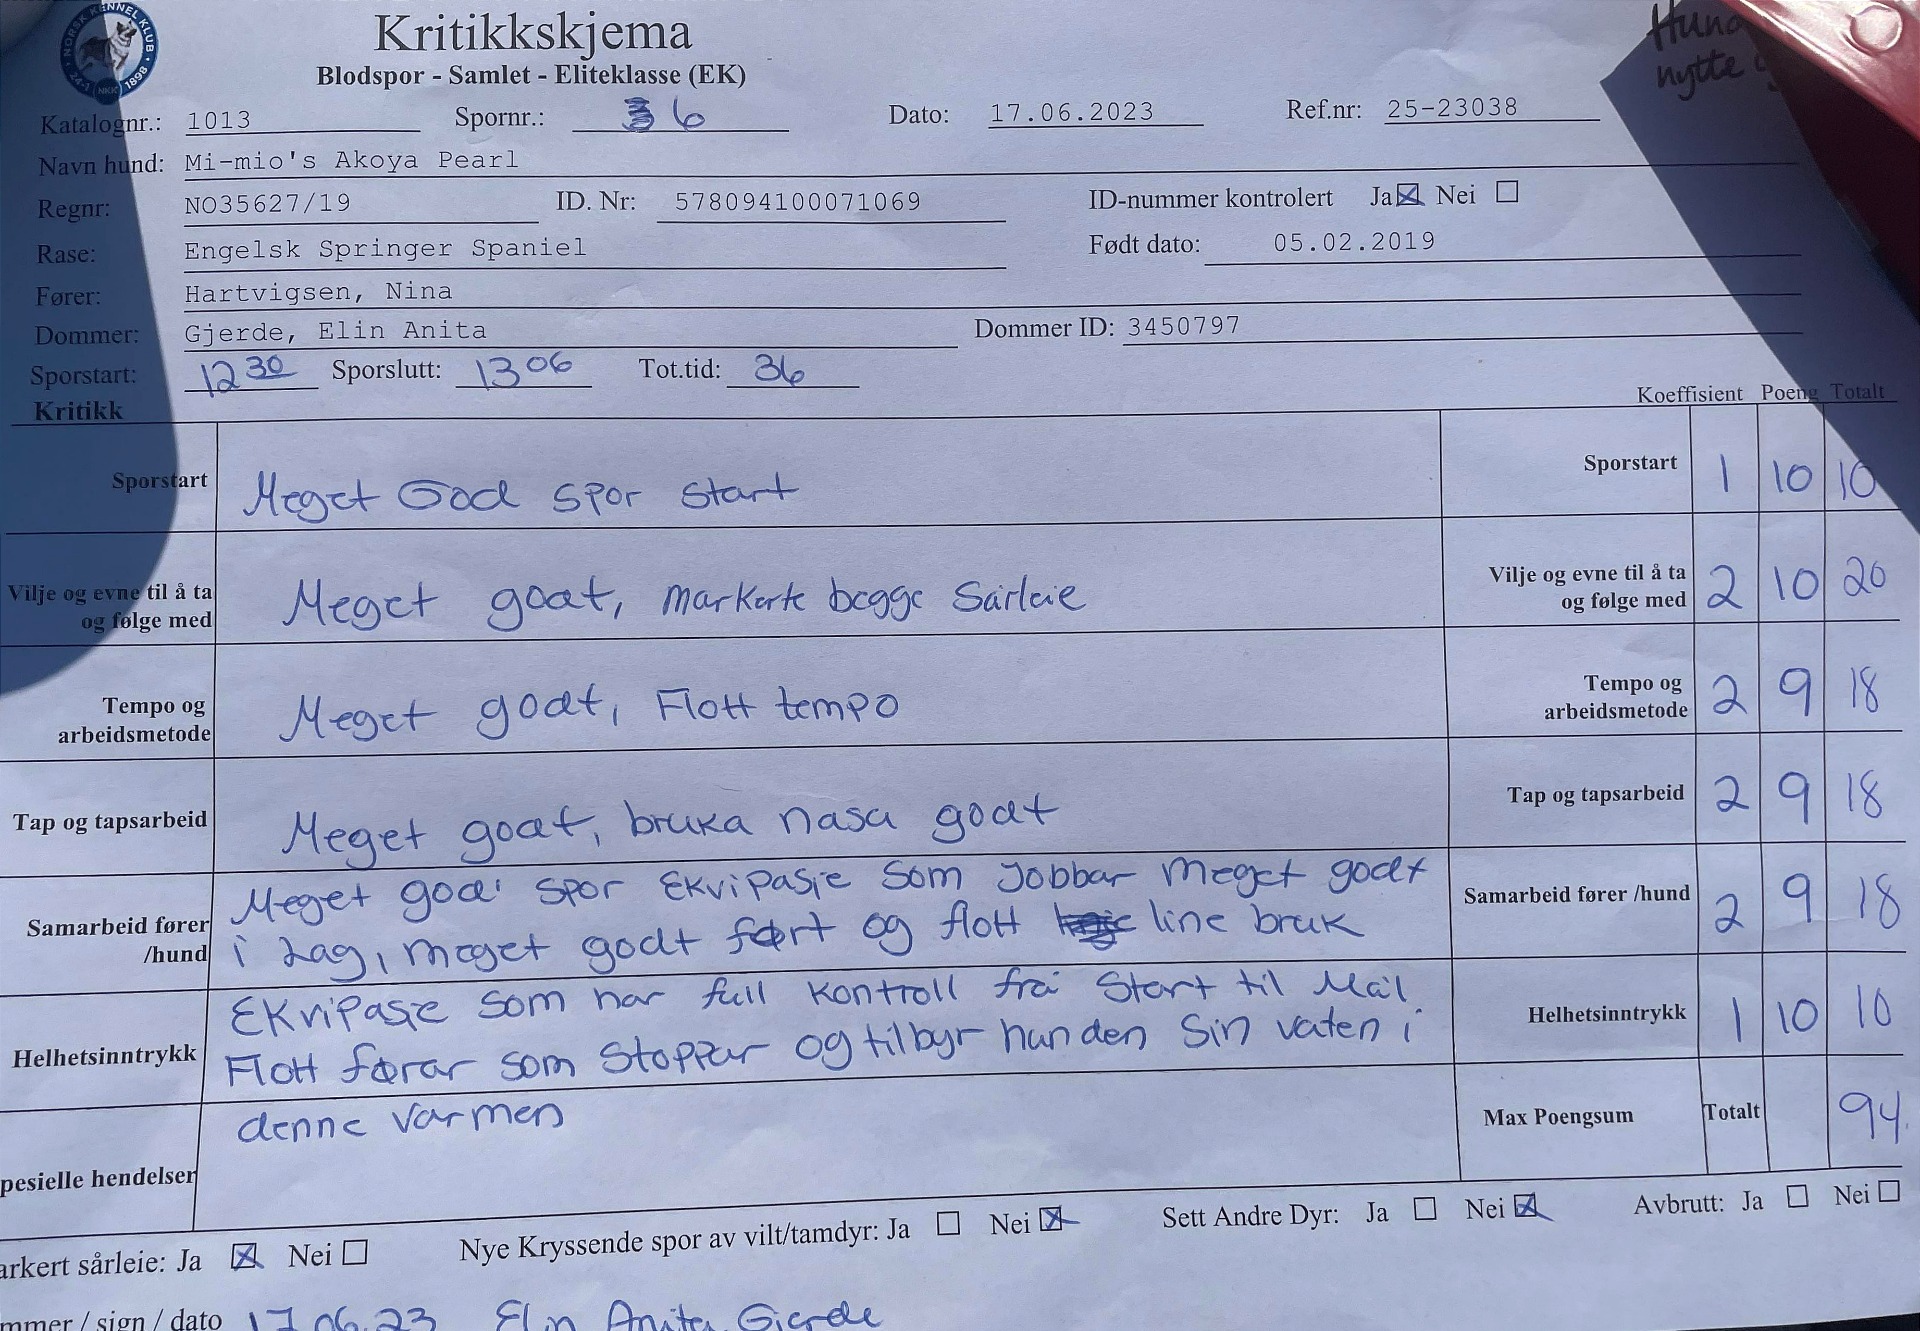 NORSK KENNEL KLUB
24-1 NKK 1898
Kritikkskjema
Blodspor - Samlet - Eliteklasse (EK)
Hund
nytte
Katalognr.: 1013 Spornr.: 6 Dato: 17.06.2023 Ref.nr: 25-23038
Navn hund: Mi-mio's Akoya Pearl
Regnr: NO35627/19 ID. Nr: 578094100071069 ID-nummer kontrolert Ja ☒ Nei ☐
Rase: Engelsk Springer Spaniel Født dato: 05.02.2019
Fører: Hartvigsen, Nina
Dommer: Gjerde, Elin Anita Dommer ID: 3450797
Sporstart: 12 30 Sporslutt: 13 06 Tot.tid: 36
Kritikk Koeffisient Poeng Totalt
Sporstart Meget God spor start Sporstart 1 10 10
Vilje og evne til å ta
og følge med
Meget godt, markerte begge Sårleie
Vilje og evne til å ta
og følge med
2 10 20
Tempo og
arbeidsmetode
Meget godt, Flott tempo
Tempo og
arbeidsmetode
2 9 18
Tap og tapsarbeid Meget godt, bruka nasa godt Tap og tapsarbeid 2 9 18
Samarbeid fører
/hund
Meget god spor Ekvipasje som Jobbar Meget godt
i Lag, meget godt ført og flott line bruk
Samarbeid fører /hund 2 9 18
Helhetsinntrykk
Ekvipasje som har full kontroll frå Start til Mål.
Flott førar som stoppar og tilbyr hunden Sin vaten i
denne varmen
Helhetsinntrykk 1 10 10
Max Poengsum Totalt 94
pesielle hendelser
arkert sårleie: Ja ☒ Nei ☐ Nye Kryssende spor av vilt/tamdyr: Ja ☐ Nei ☒ Sett Andre Dyr: Ja ☐ Nei ☒ Avbrutt: Ja ☐ Nei ☐
mmer / sign / dato 17.06.23 Elin Anita Gjerde